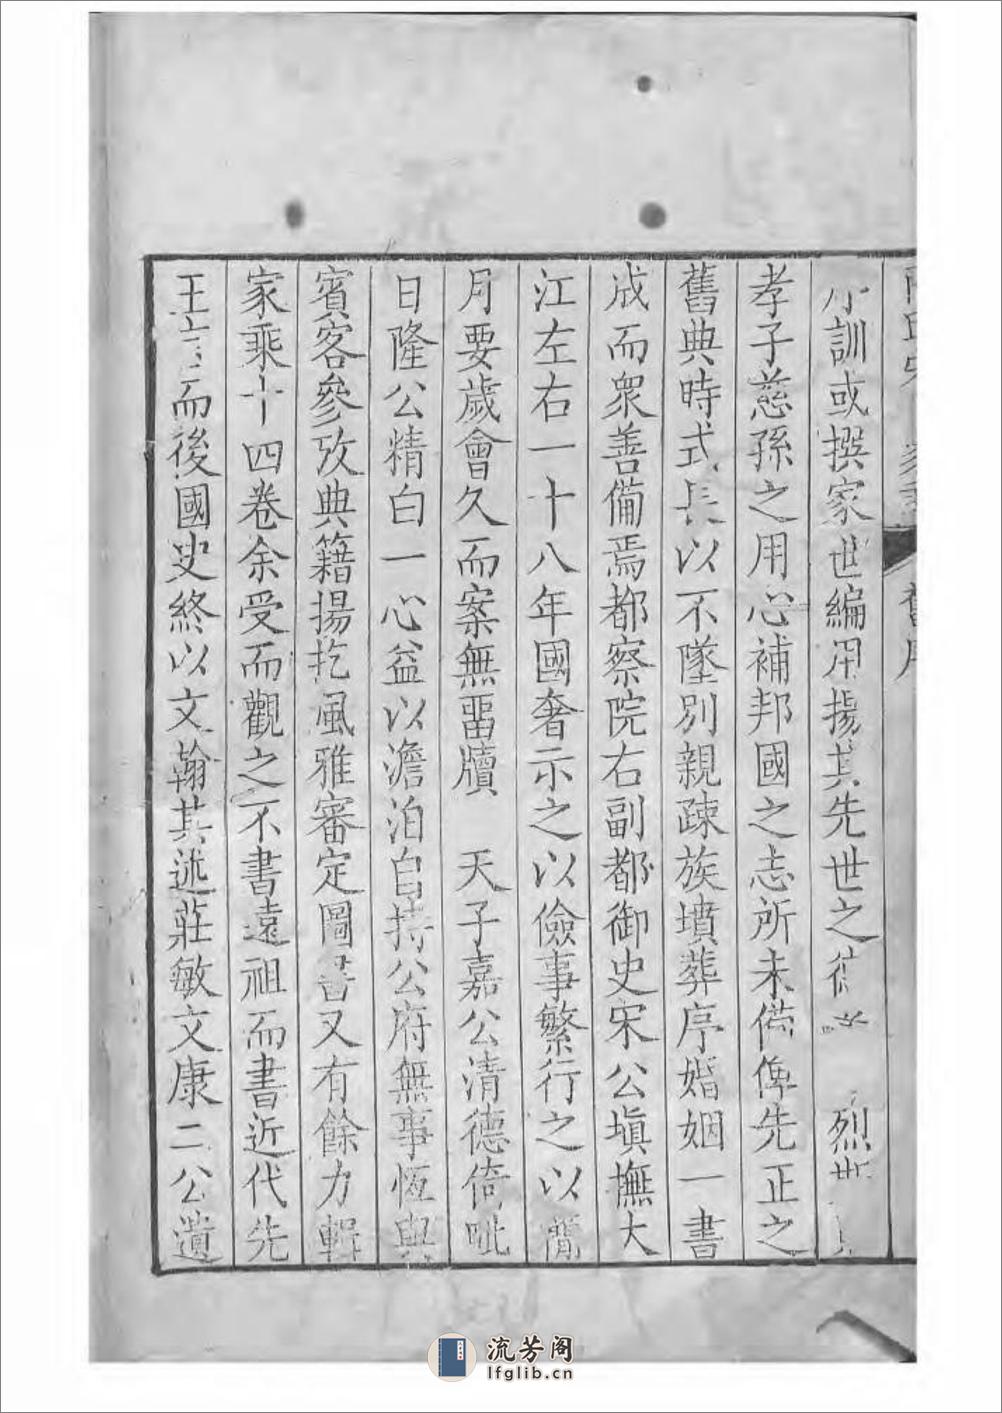 訓或撰家世編用揚其先世之 烈
孝子慈孫之用心補邦國之志所未備俾先正之
舊典時式長以不墜別親疎族墳葬序婚姻一書
成而衆善備焉都察院右副都御史宋公塡撫大
江左右一十八年國奢示之以儉事繁行之以簡
月要歲會久而案無畱牘 天子嘉公清德倚毗
日隆公精白一心益以澹泊自持公府無事恆與
賓客參攷典籍揚扢風雅審定圖書又有餘力輯
家乘十四卷余受而觀之不書遠祖而書近代先
王言而後國史終以文翰其述莊敏文康二公遺
舊序
流芳阁
lfglib.cn